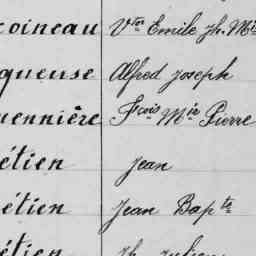 coineau Vtor Emile Jh. Mie
queuse Alfred Joseph
uennière Fçois Mie Pierre
étien Jean
étien Jean Bapte
étien Jh. Julien